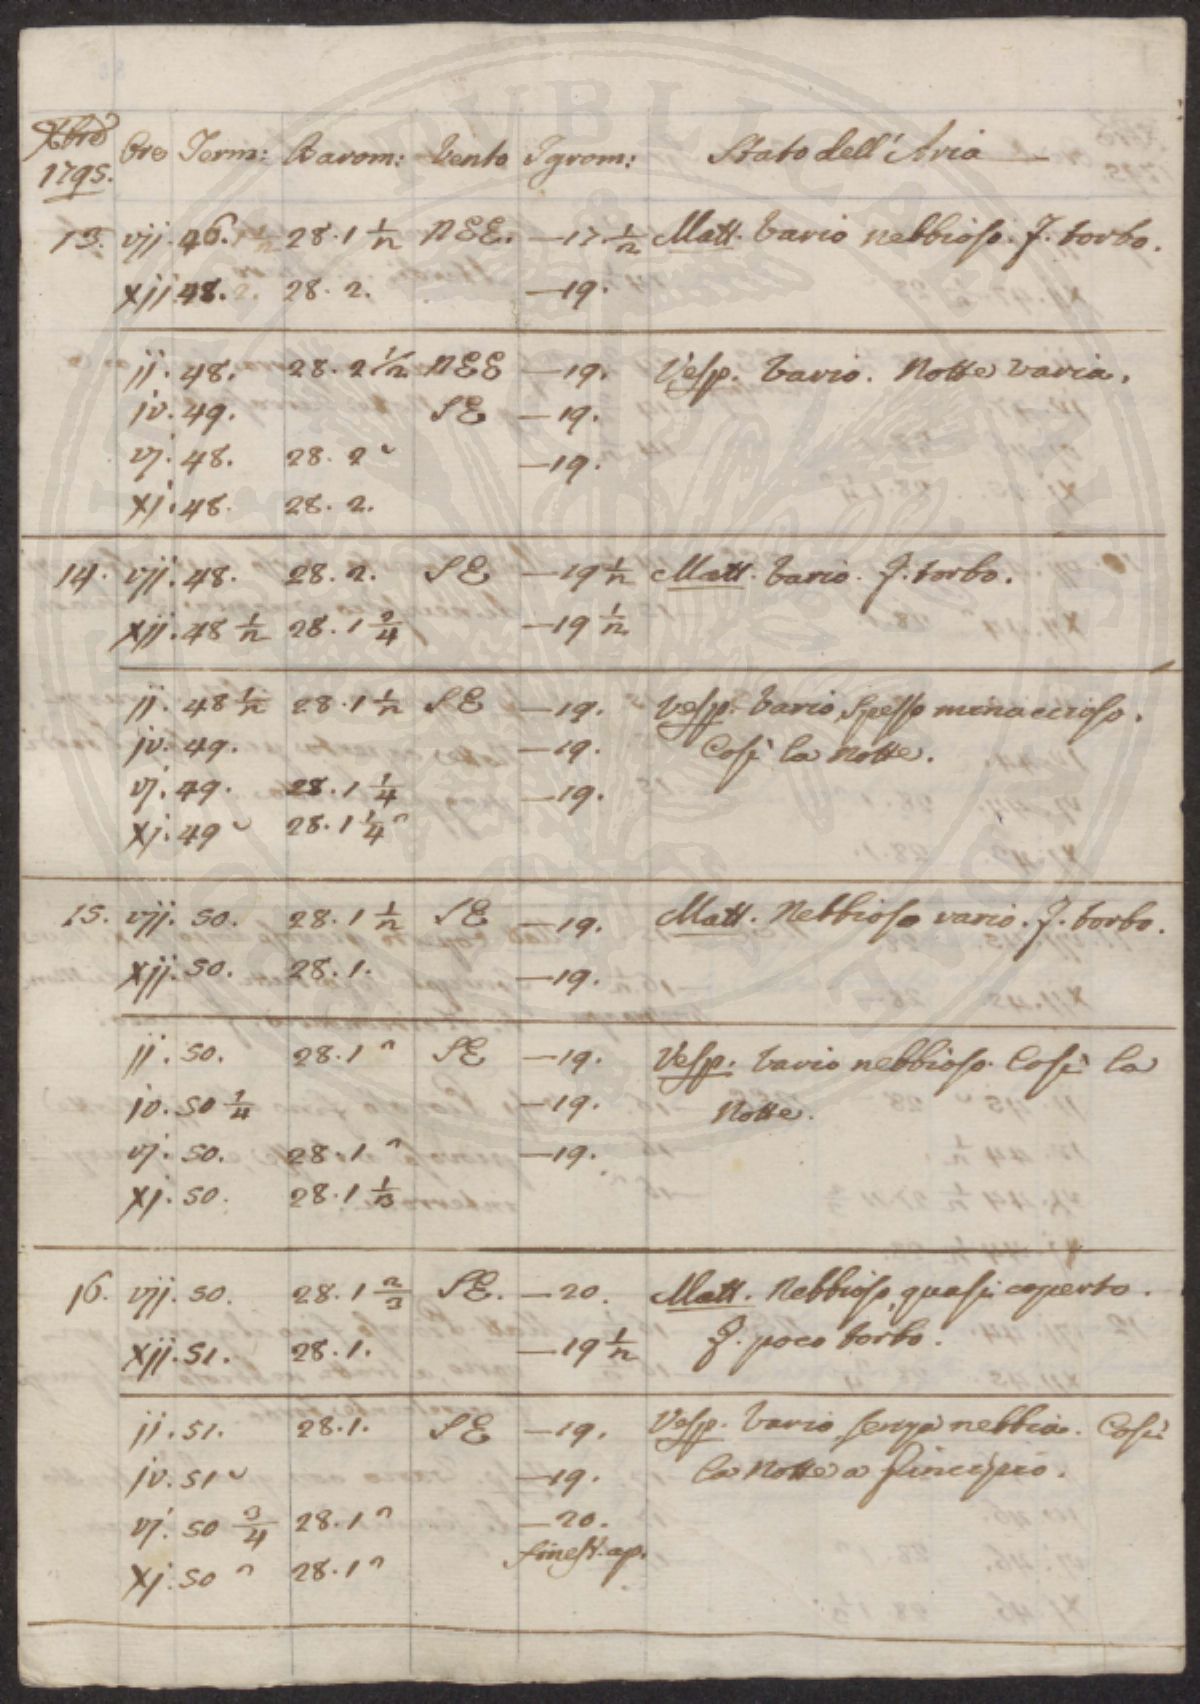 Xbre 1795. Ore Term: Barom: Vento Igrom: Stato dell'Aria
13. vij. 46. 28. 1 1/2 NEE. —17 1/2 Matt. Vario nebbioso. J. torbo.
xij. 48. 2. 28. 2. —19.
ij. 48. 28. 2 1/2 NEE —19. Vesp. Vario. Notte varia.
iv. 49. SE —19.
vj. 48. 28. 2 ᵕ —19.
xj. 48. 28. 2.
14. vij. 48. 28. 2. SE —19 1/2 Matt. Vario. J. torbo.
xij. 48 1/2 28. 1 3/4 —19 1/2
ij. 48 1/2 28. 1 1/2 SE —19. Vesp. Vario, spesso minaccioso.
iv. 49. —19. Così la Notte.
vj. 49. 28. 1 1/4 —19.
xj. 49 ᵕ 28. 1 1/4 ᴖ
15. vij. 50. 28. 1 1/2 SE —19. Matt. Nebbioso vario. J. torbo.
xij. 50. 28. 1. —19.
ij. 50. 28. 1 ᴖ SE —19. Vesp. Vario nebbioso. Così la
iv. 50 1/4 —19. Notte.
vj. 50. 28. 1 ᴖ —19.
xj. 50. 28. 1 1/3
16. vij. 50. 28. 1 2/3 SE. —20. Matt. Nebbioso, quasi coperto.
xij. 51. 28. 1. —19 1/2 J. poco torbo.
ij. 51. 28. 1. SE —19. Vesp. Vario, senza nebbia. Così
iv. 51 ᵕ —19. la Notte a principio.
vj. 50 3/4 28. 1 ᴖ —20.
finest. ap.
xj. 50 ᴖ 28. 1 ᴖ